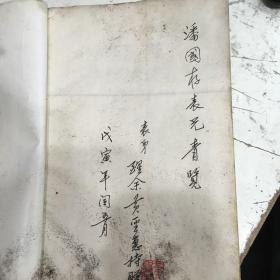 潘國存表兄青覽
表弟 羅余黃聖惠持贈
戊寅年閏五月